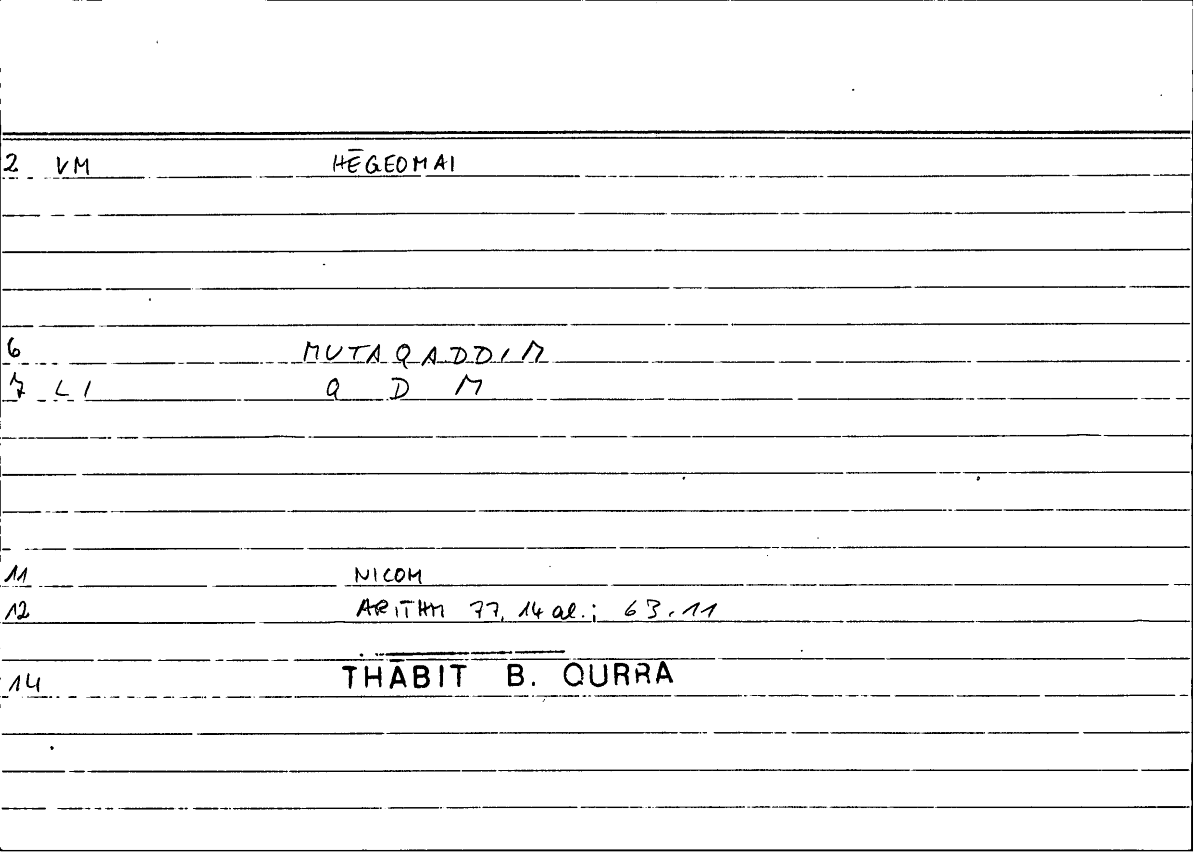 2 VM HĒGEOMAI
6 MUTAQADDIM
7 LI Q D M
11 NICOM
12 ARITHM 77, 14 al.; 63.11
14 THĀBIT B. QURRA